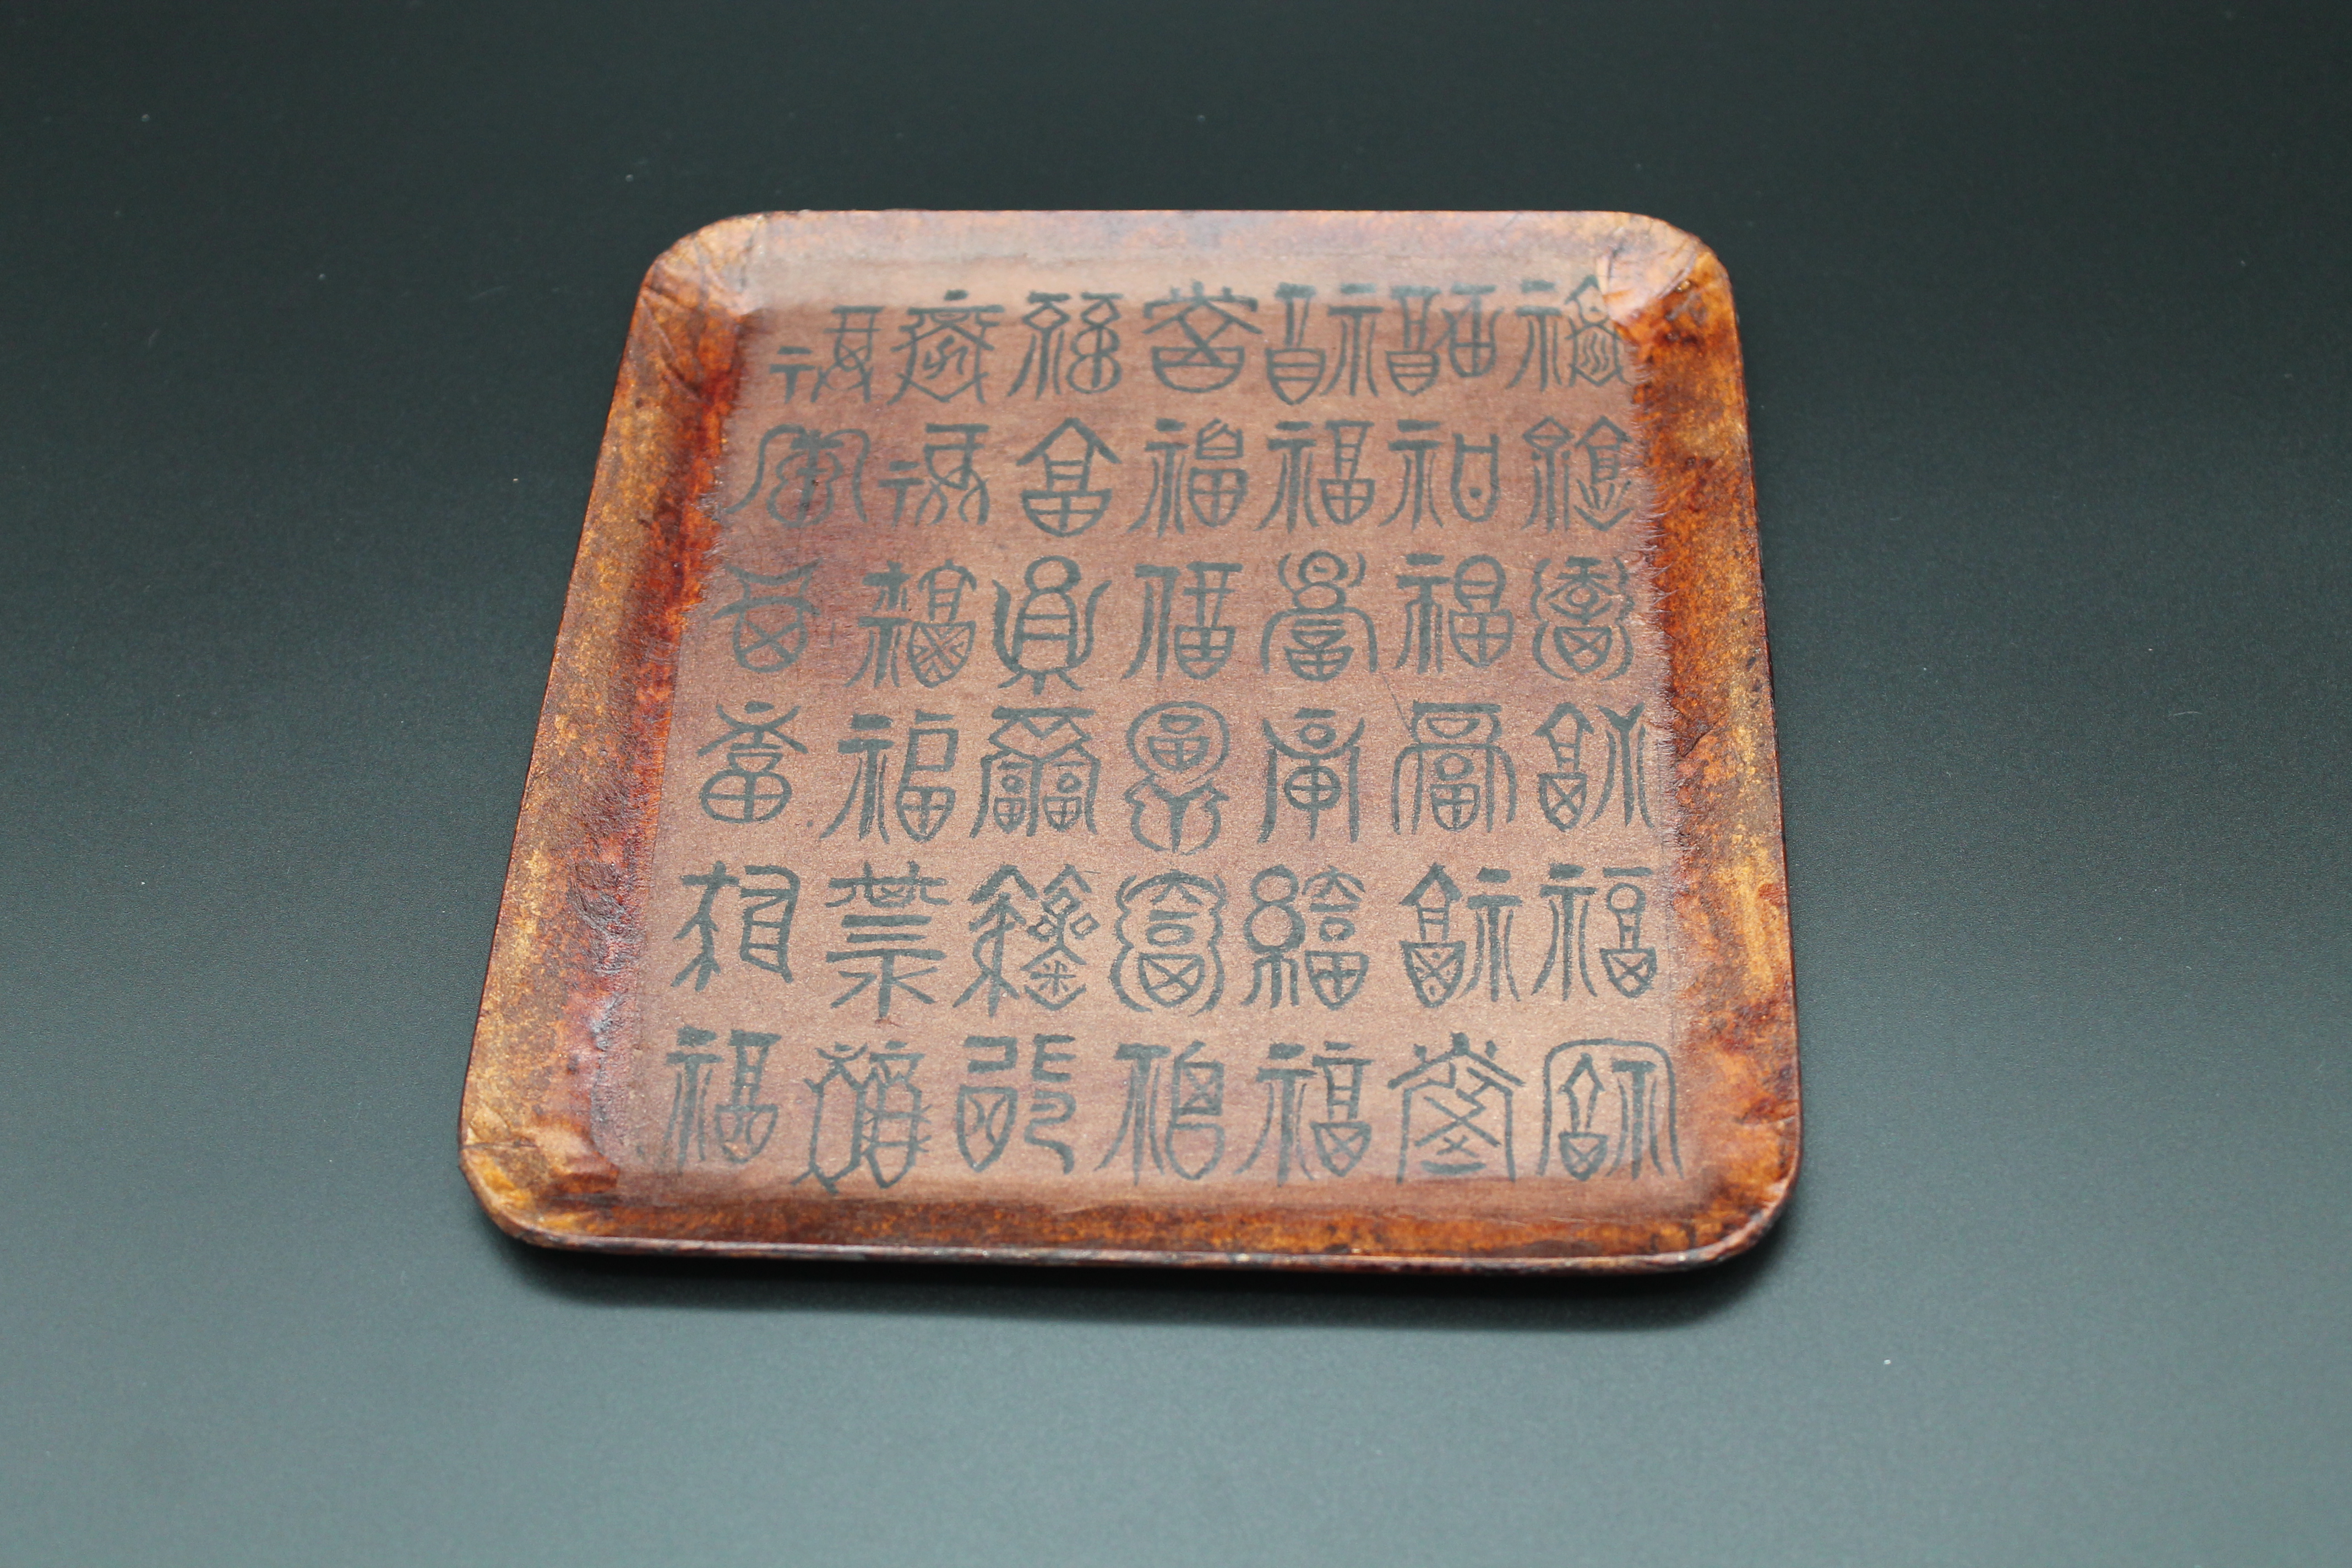 福福福福福福福
福福福福福福福
福福福福福福福
福福福福福福福
福福福福福福福
福福福福福福福